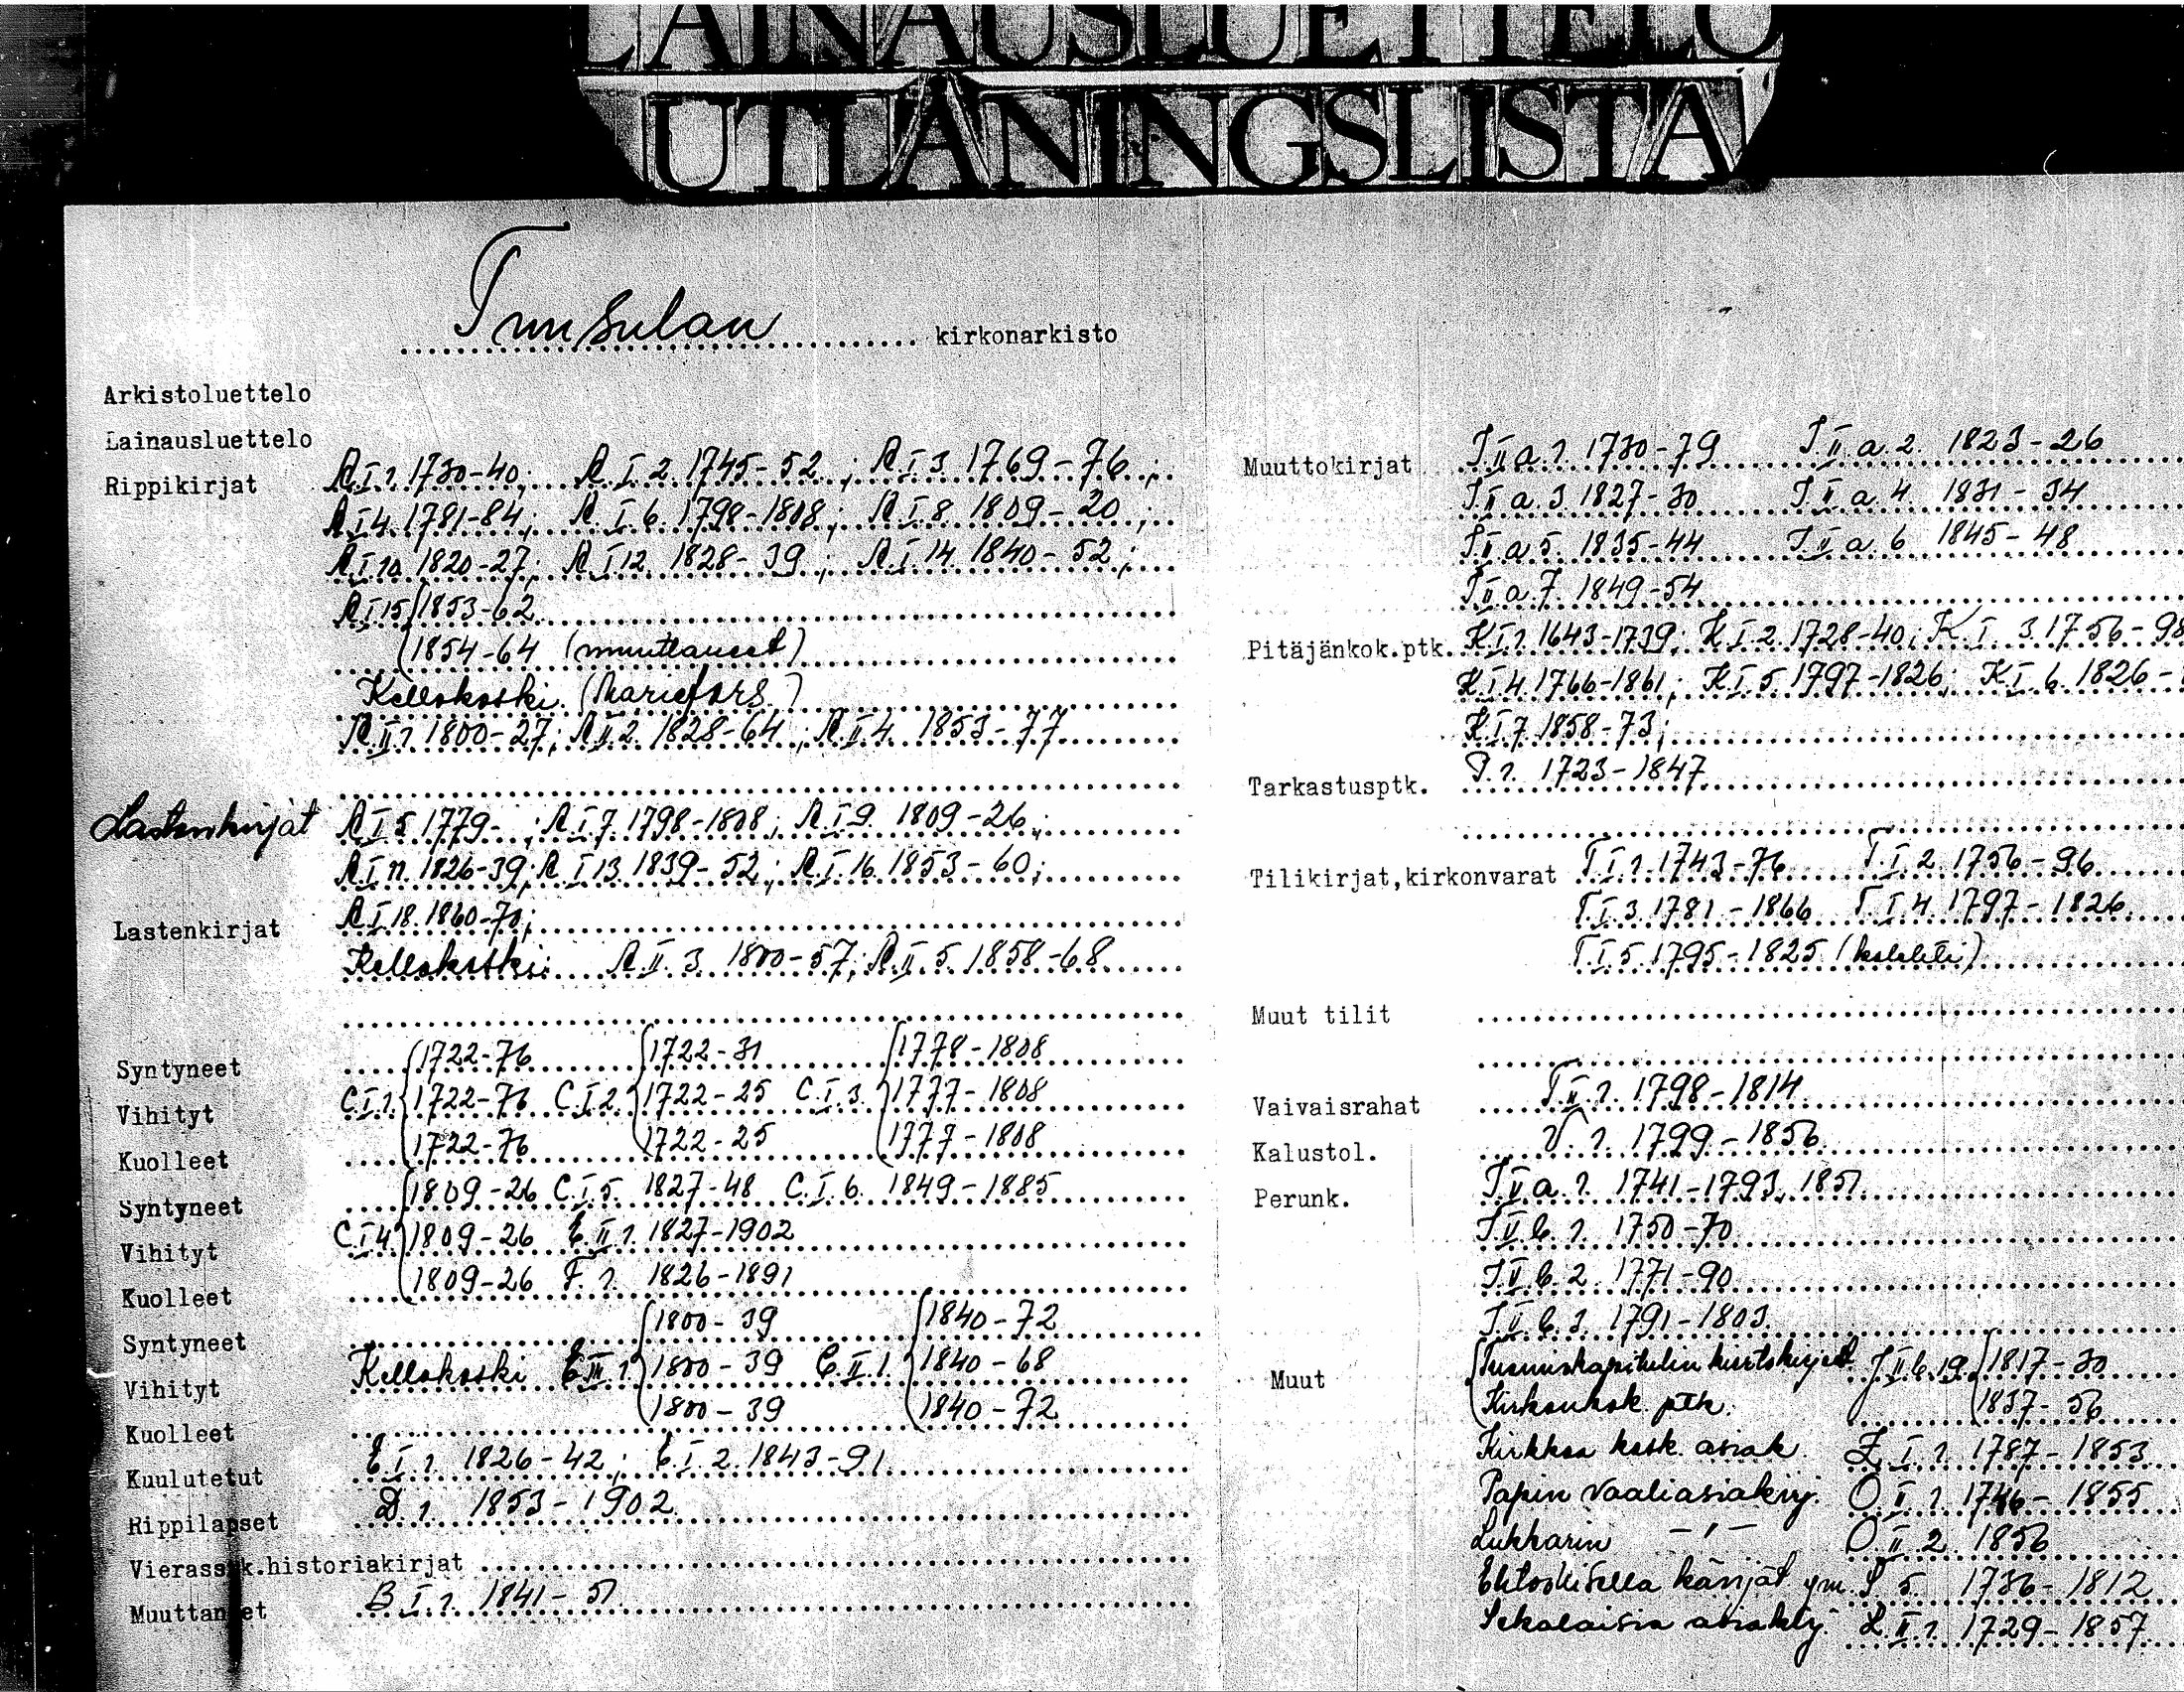 LAINAUSLUETTELO
UTLÅNINGSLISTA
Tuusulan kirkonarkisto
Arkistoluettelo
Lainausluettelo
Rippikirjat R I 1. 1730-40; R I 2. 1745-52; R I 3. 1769-76;
R I 4. 1781-84; R I 6. 1798-1808; R I 8. 1809-20;
R I 10. 1820-27; R I 12. 1828-39; R I 14. 1840-52;
R I 15 1853-62
1854-64 (muuttaneet)
Kellokoski (Mariefors)
R II 1. 1800-27; R II 2. 1828-64; R II 4. 1853-77
Lastenkirjat R I 5. 1779- ; R I 7. 1798-1808; R I 9. 1809-26;
R I 11. 1826-39; R I 13. 1839-52; R I 16. 1853-60;
Lastenkirjat R I 18. 1860-70;
Kellokoski: R II 3. 1800-57; R II 5. 1858-68
Syntyneet 1722-76 1722-31 1778-1808
Vihityt C I 1. 1722-76 C I 2. 1722-25 C I 3. 1777-1808
Kuolleet 1722-76 1722-25 1777-1808
Syntyneet 1809-26 C I 5. 1827-48 C I 6. 1849-1885
Vihityt C I 4 1809-26 E II 1. 1827-1902
Kuolleet 1809-26 F. 1. 1826-1891
Syntyneet 1800-39 1840-72
Vihityt Kellokoski 1800-39 C II 1. 1840-68
Kuolleet 1800-39 1840-72
Kuulutetut E I 1. 1826-42; E I 2. 1843-91
Rippilapset D 1 1853-1902
Vierassk.historiakirjat
Muuttaneet B I 1. 1841-51
Muuttokirjat J II a 1. 1730-79 J II a 2. 1823-26
J II a 3 1827-30 J II a 4 1831-34
J II a 5. 1835-44 J II a 6 1845-48
J II a 7. 1849-54
Pitäjänkok.ptk. K I 1. 1643-1739; K I 2. 1728-40; K I 3. 1756-98
K I 4. 1766-1861; K I 5. 1797-1826; K I 6. 1826-
K I 7. 1858-73;
Tarkastusptk. P. 1. 1723-1847
Tilikirjat,kirkonvarat T I 1. 1743-76 T I 2. 1756-96
T I 3. 1781-1866 T I 4. 1797-1826
T I 5. 1795-1825 (kolehti)
Muut tilit
Vaivaisrahat T II 1. 1798-1814
Kalustol. V. 1. 1799-1856
Perunk. J V a. 1. 1741-1793, 1851
J V b. 1. 1750-70
J V b. 2. 1771-90
J V b. 3. 1791-1803
Muut Tuomiokapitulin kiertokirjeet J II b 19 1817-30
Kirkonkok. ptk. 1837-56
Kirkkoa kosk. asiak. Z I 1. 1787-1853
Papin vaaliasiakirj. O II 1. 1746-1855
Lukkarin -"- O II 2 1856
Ehtoollisella kävijät ym. S 5. 1736-1812
Sekalaisia asiakirj. Z II 1. 1729-1857